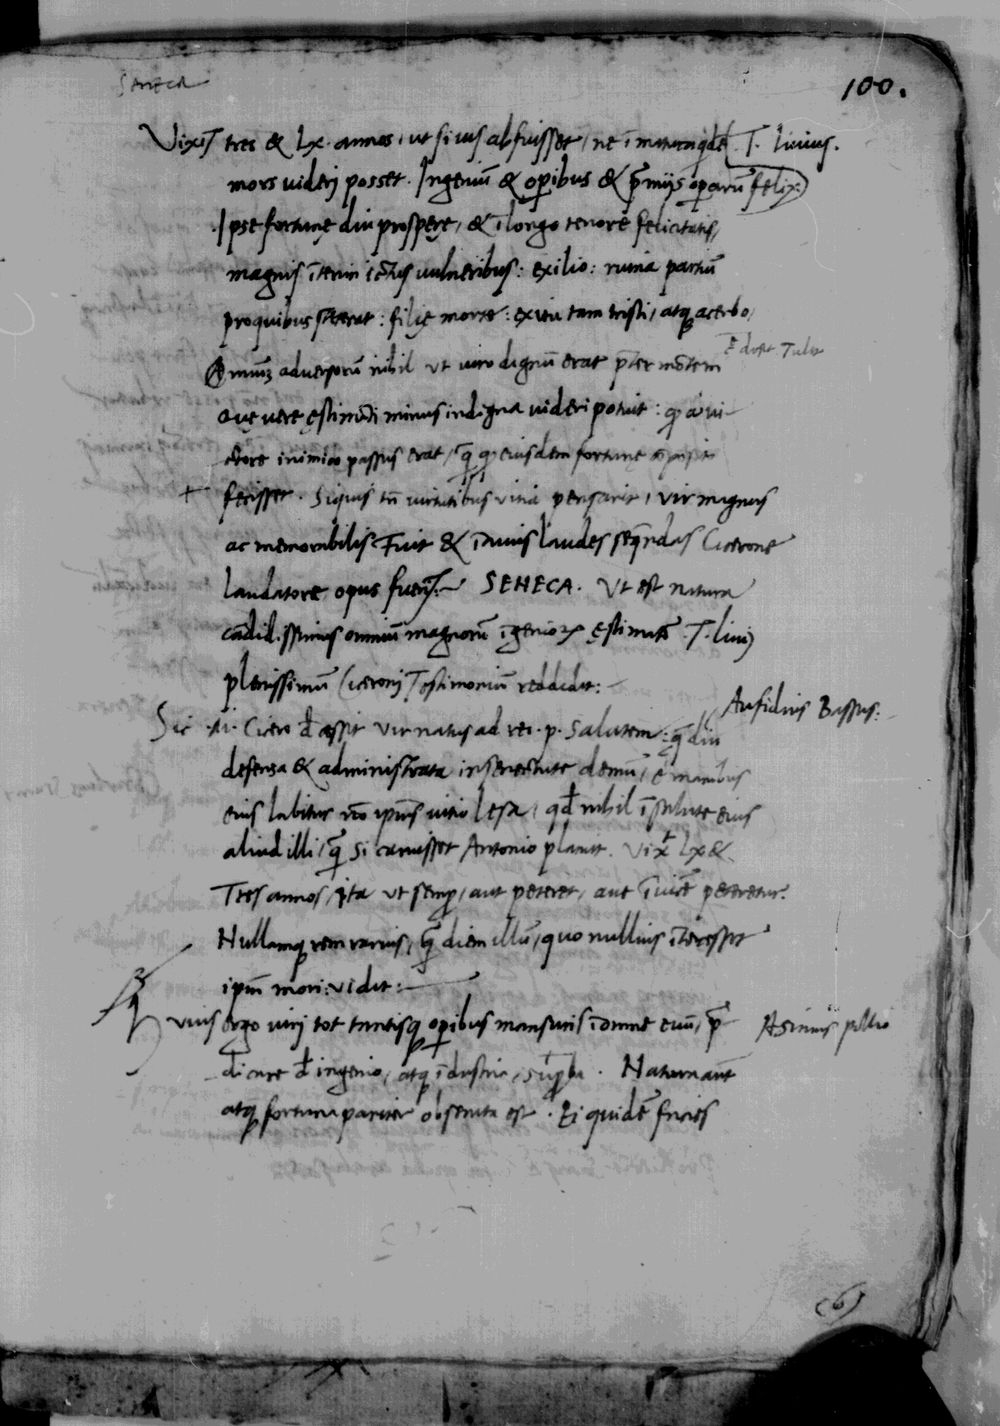 Seneca
100.
Vixit tres & Lx. annos, ut si uis abfuisset, ne īmatura q̄dē T. Liuius.
mors uideri posset. Ingeniū & opibus & p̄mijs operarū felix:
Ipse fortunę diu prosperę, & ī longo tenore felicitatis,
magnis īterim ictus uulneribus: exilio: ruina partiū
pro quibus steterat: filię morte: exitu tam tristi, atq; acerbo,
Omniū aduersorū nihil ut uiro dignū erat p̄ter mortem
quę uere ęstimāti minus indigna uideri potuit: q̄ a ui-
ctore inimico passus erat, q̄ q̄ eiusdem fortunę
+ fecisset. Siquis tn̄ uirtutibus uitia pensarit, uir magnus
ac memorabilis Fuit & ī cuius laudes seq̄ndas Cicerone
laudatore opus fuerit. SENECA. Ut est natura
cādidissimus omniū magnorū īgenioꝝ ęstimator T. Liuij
plenissimū Ciceronj Testimonium reddidit:
Aufidius Bassus:
Sic M. Cicero decessit uir natus ad rei. p. salutem: q̄ diu
defensa & administrata in senectute demū, ē manibus
eius labitur uno ipsius uitio lesa, qd̄ nihil ī salute eius
aliud illi, q̄ si caruisset Antonio placuit. Vixt̄ Lx &
Tres annos, ita ut semp̄, aut peteret, aut īuicē peteretur.
Nullamq; rem rarius, q̄ diem illū, quo nullius īteresset
ipm̄ mori: uidit:
uius ergo uiri tot tantisq; operibus mansuris ī omne euū, p̄ Asinius pollio
dicare d̄ ingenio, atq; īdustria, sup̄ba. Natura aut̄
atq; fortuna pariter obsecuta est. Ei quidē facies
(6)